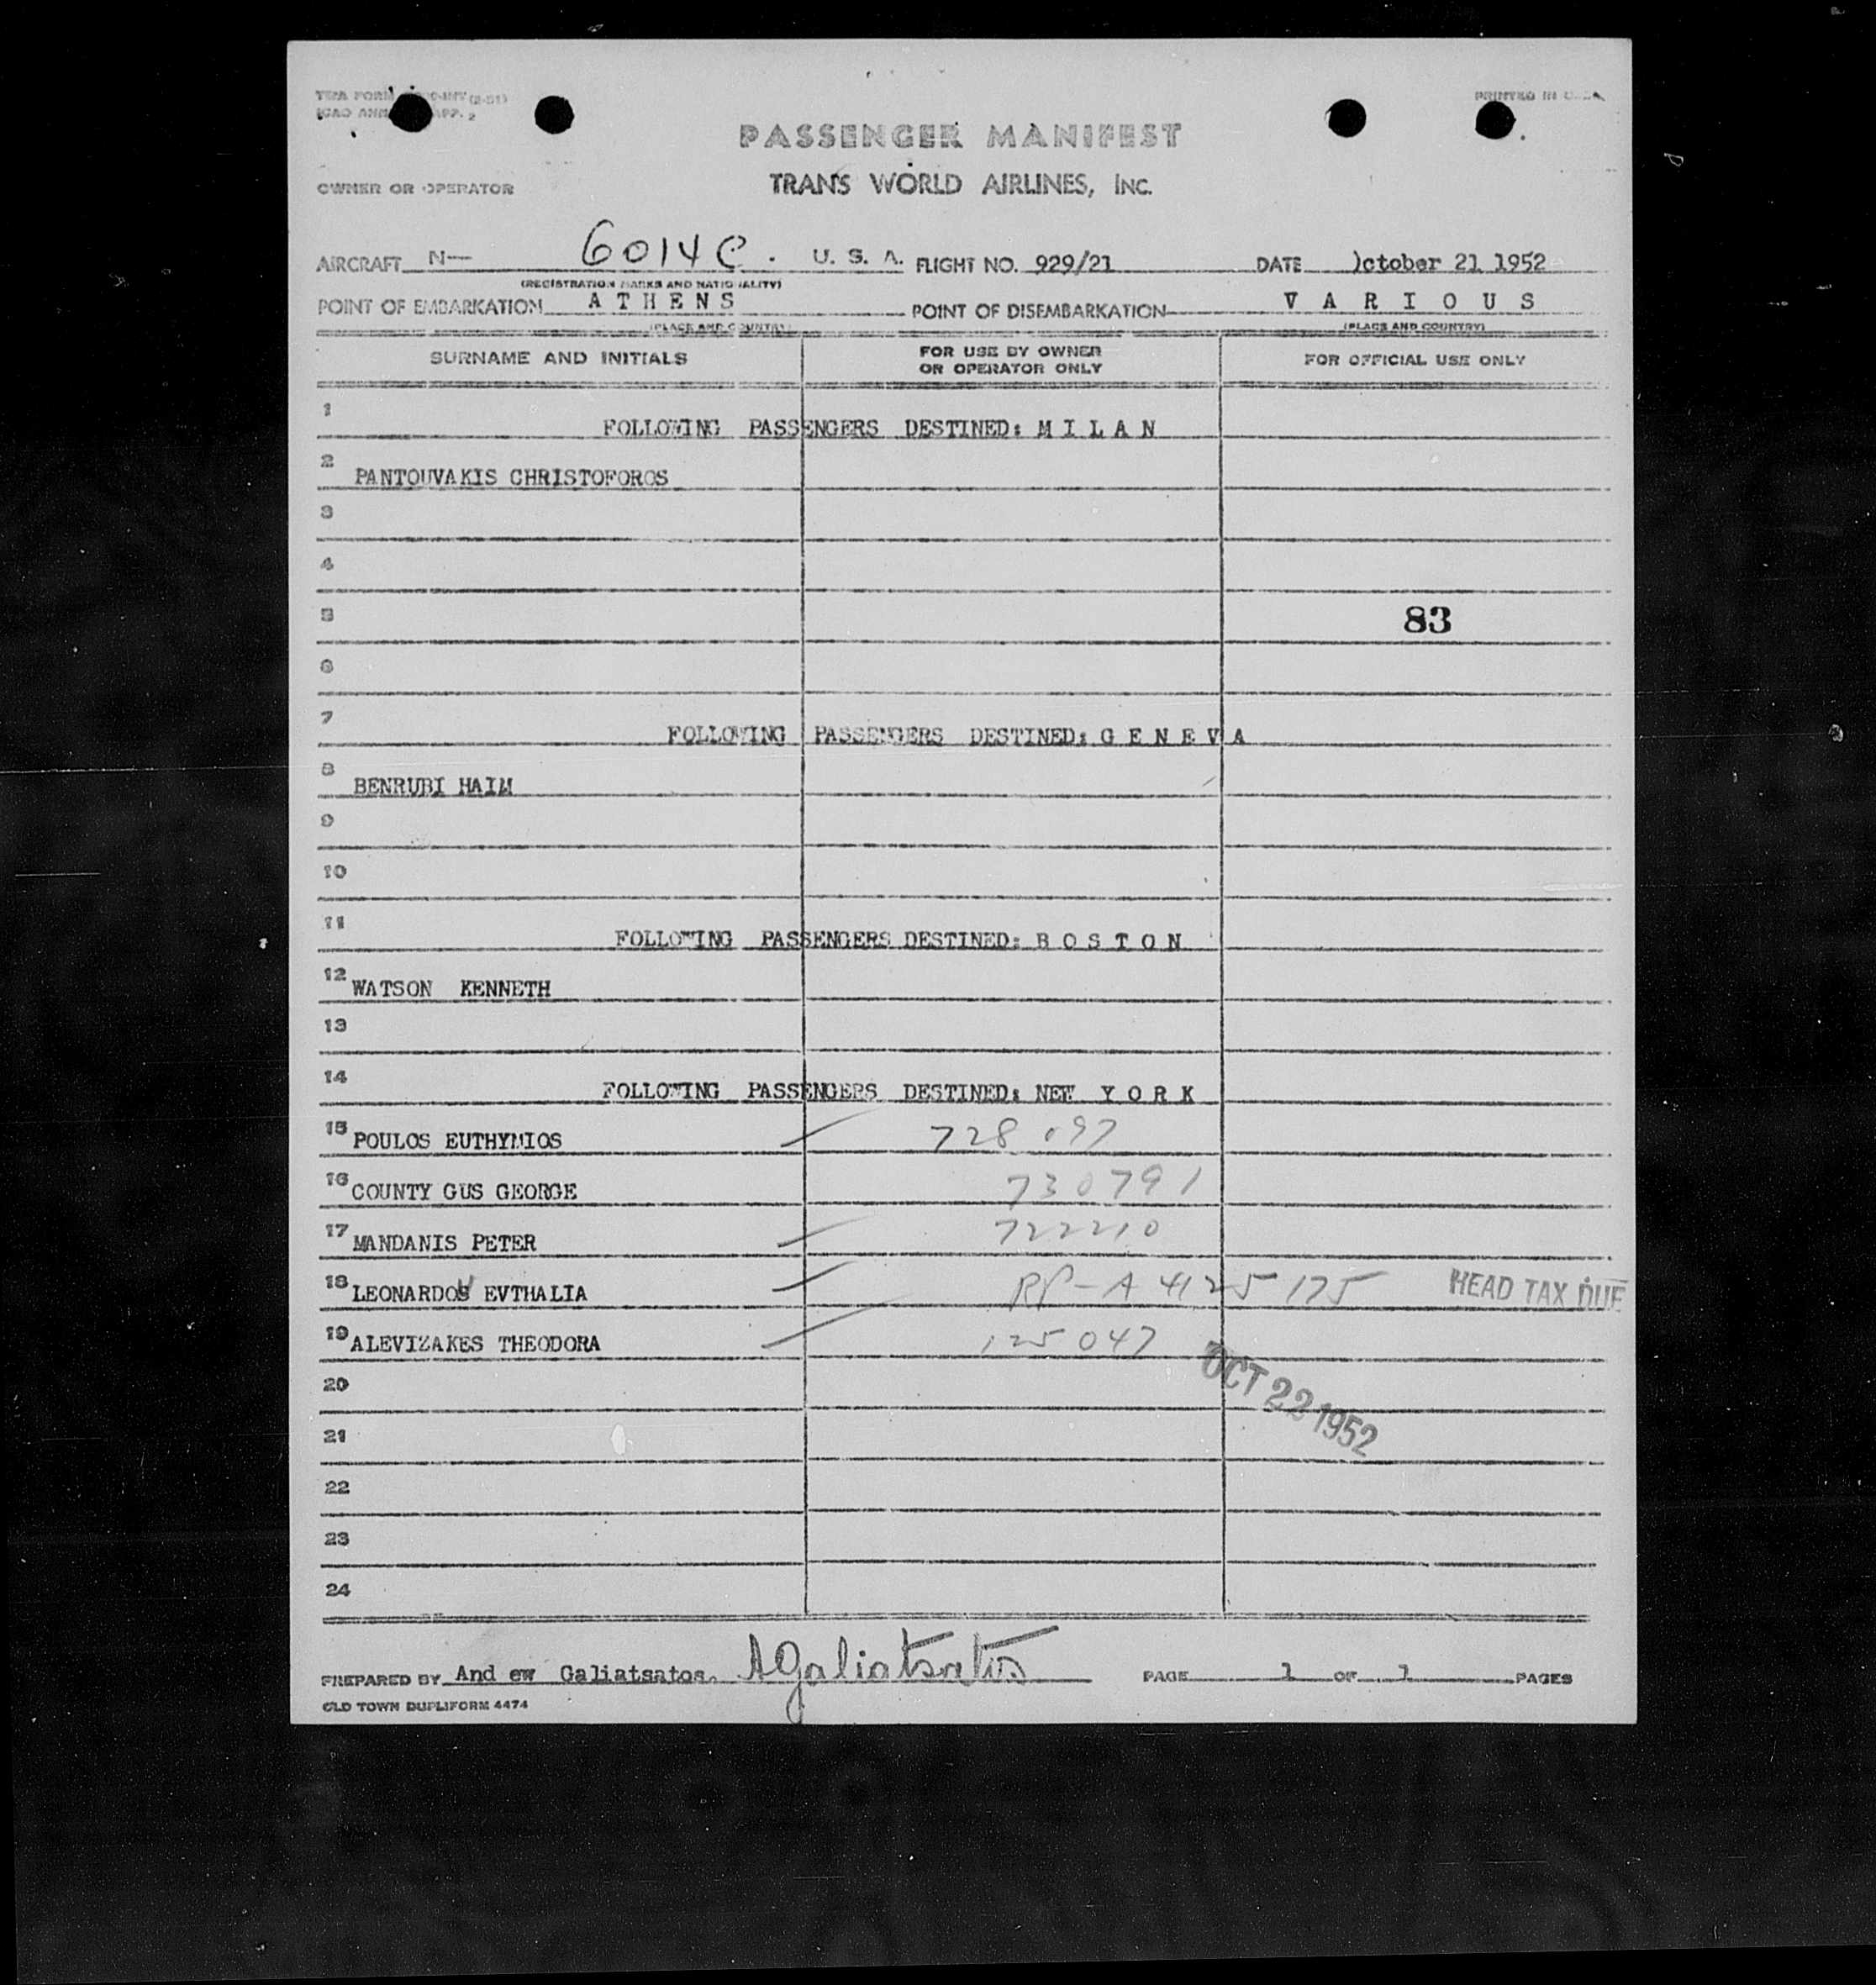 PRINTED IN U.S.A.
PASSENGER MANIFEST
OWNER OR OPERATOR TRANS WORLD AIRLINES, INC.
AIRCRAFT N— 6014C. U. S. A. FLIGHT NO. 929/21 DATE October 21 1952
(REGISTRATION MARKS AND NATIONALITY)
POINT OF EMBARKATION A T H E N S POINT OF DISEMBARKATION V A R I O U S
(PLACE AND COUNTRY) (PLACE AND COUNTRY)
SURNAME AND INITIALS FOR USE BY OWNER OR OPERATOR ONLY FOR OFFICIAL USE ONLY
1 FOLLOWING PASSENGERS DESTINED: M I L A N
2 PANTOUVAKIS CHRISTOFOROS
3
4
5 83
6
7 FOLLOWING PASSENGERS DESTINED: G E N E V A
8 BENRUBI HAIM
9
10
11 FOLLOWING PASSENGERS DESTINED: B O S T O N
12 WATSON KENNETH
13
14 FOLLOWING PASSENGERS DESTINED: NEW Y O R K
15 POULOS EUTHYMIOS 728097
16 COUNTY GUS GEORGE 730791
17 MANDANIS PETER 722210
18 LEONARDOU EVTHALIA RP-A 4125175 HEAD TAX DUE
19 ALEVIZAKES THEODORA 125047
20 OCT 22 1952
21
22
23
24
PREPARED BY And ew Galiatsatos. AGaliatsatos PAGE 1 OF 1 PAGES
OLD TOWN DUPLIFORM 4474